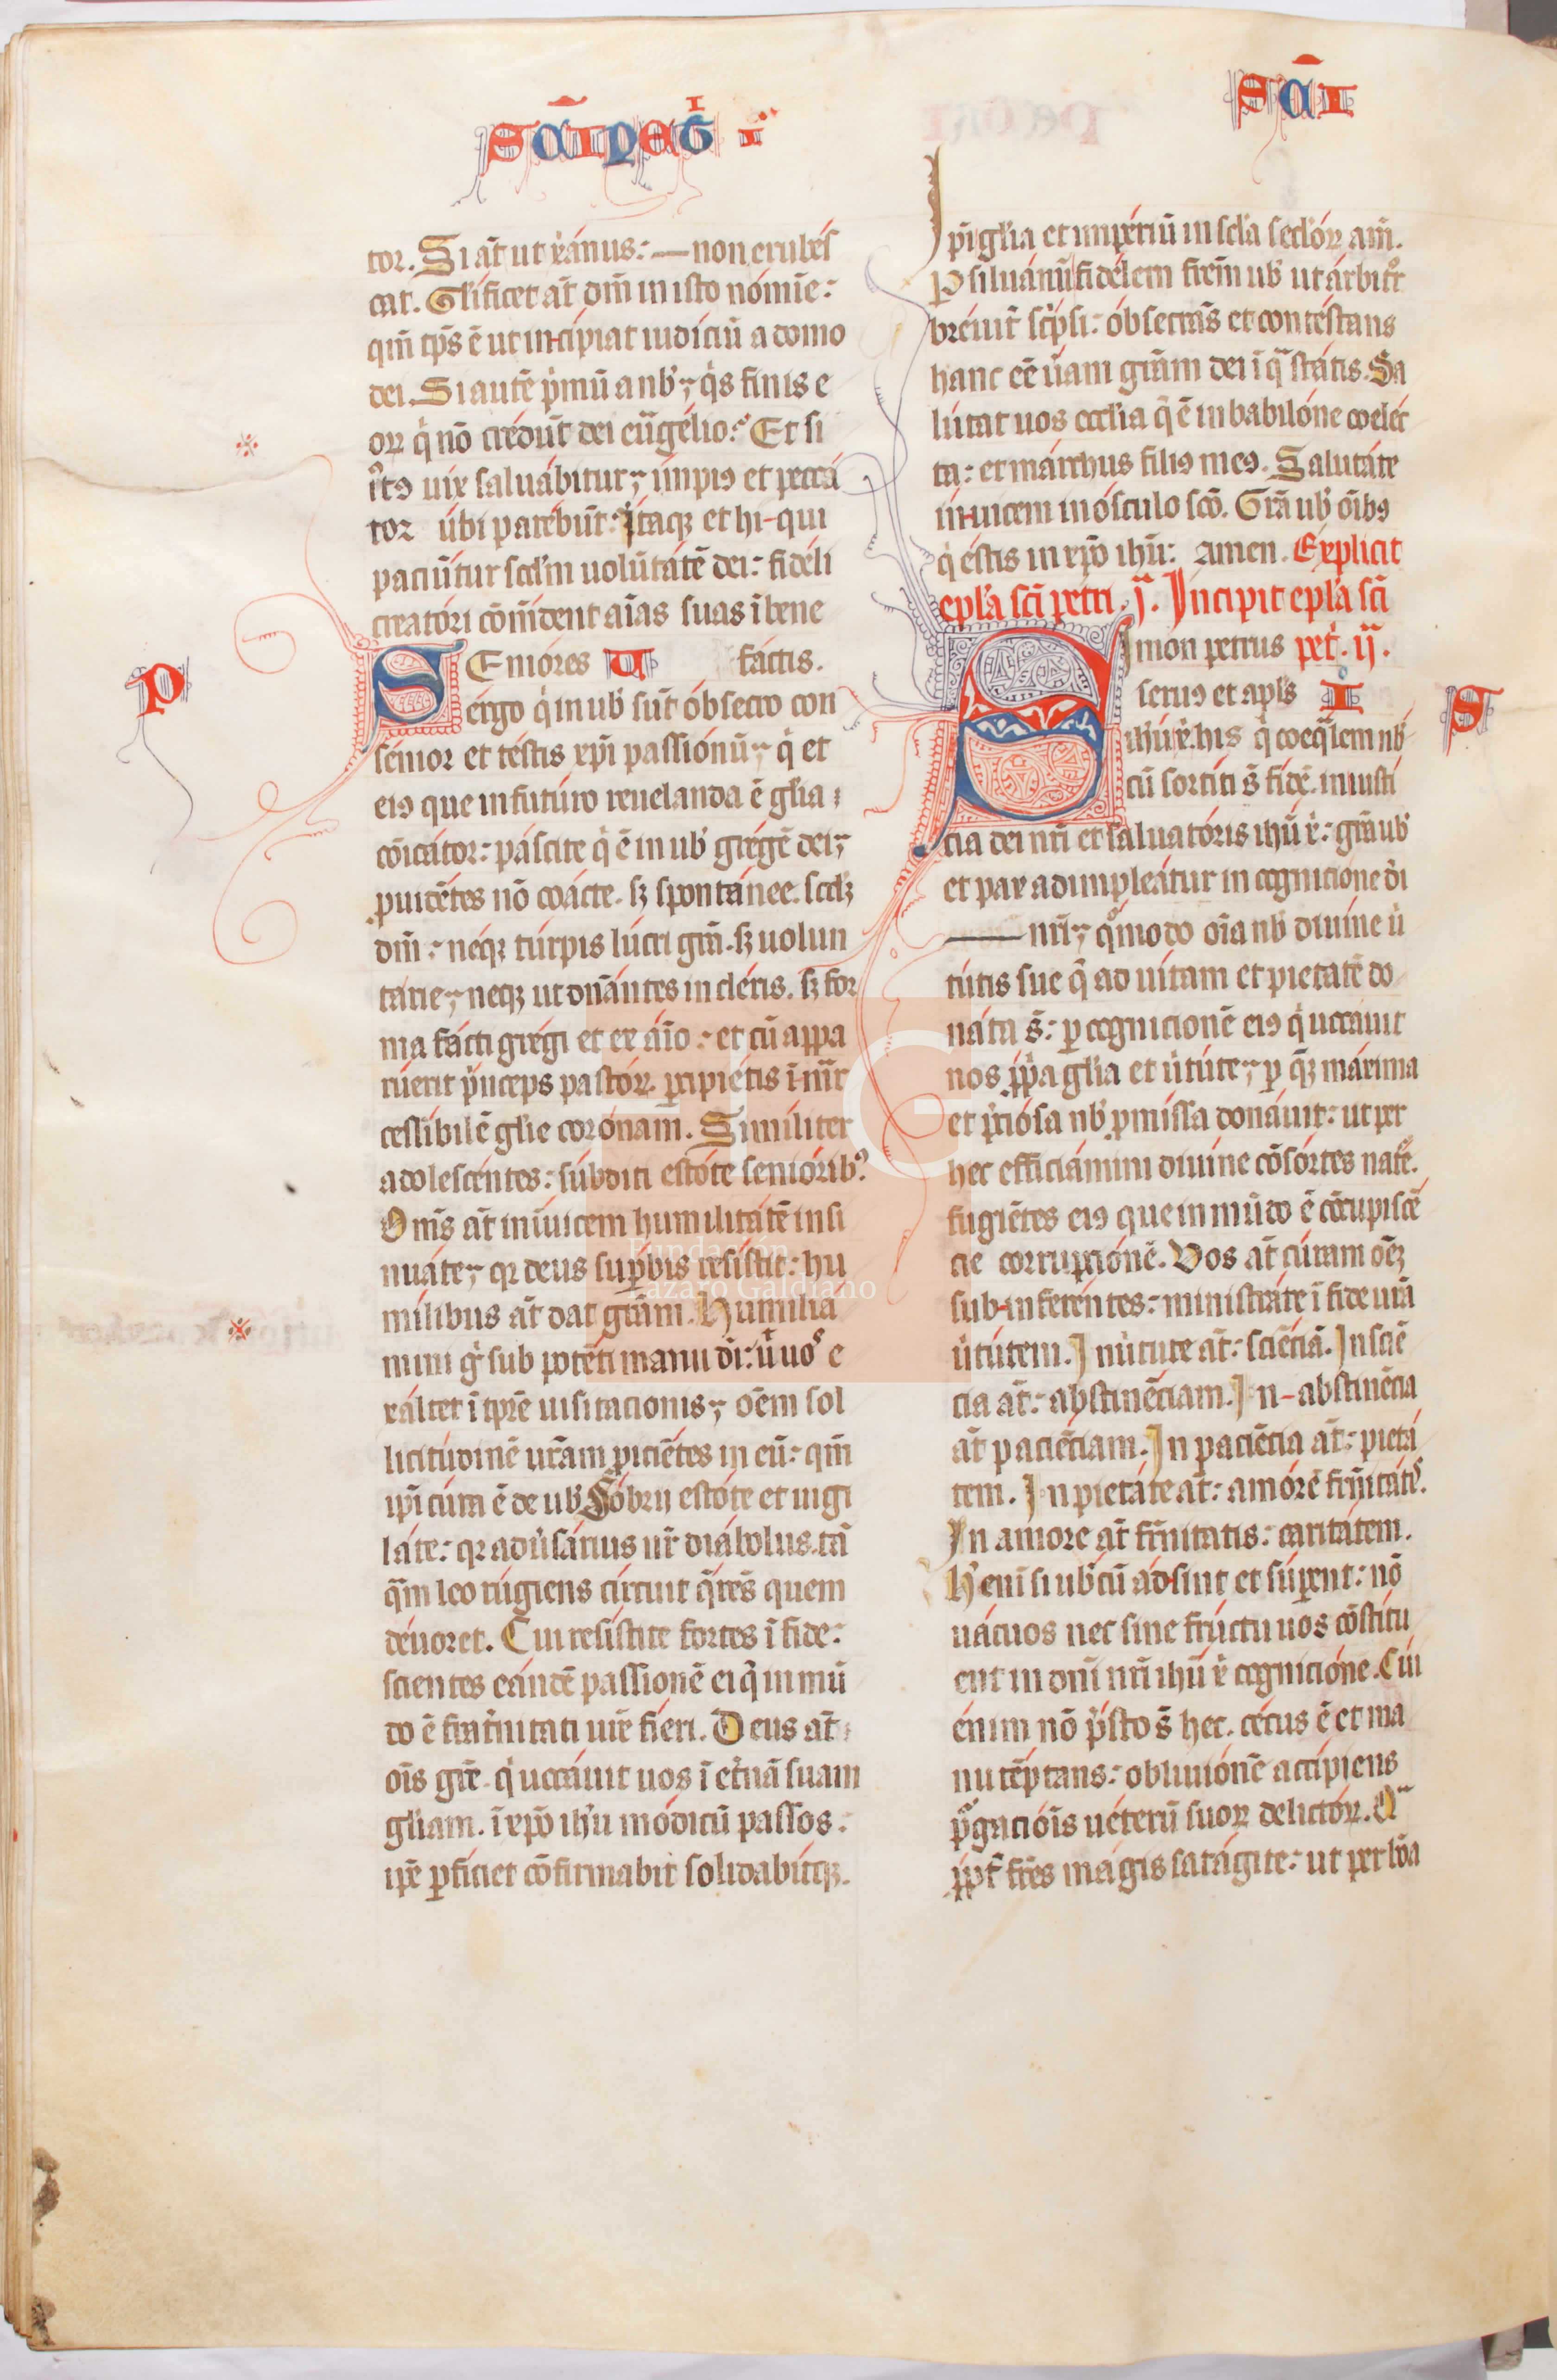 tor. Si aūt ut x̓ánus: — non erubés
cat. Gl̓ificet aūt dm̄ in isto nómīe:
qm̄ tp̄s ē ut in-cípiat iudíciū a domo
dei. Si autē p̓mū a nb̓; q̓s finis e
oꝝ q̓ nō crédūt dei euǖgélio: Et si
ꝯ uix saluábitur; ímpiꝯ et pecca
tor ubi parébūt: Itaqꝫ et hi-qui
paciūtur scd̓m uolūtátē dei: fidéli
creatóri cōm̄dent aīas suas ī bene
Senióres V factis.
érgo q̓ in ub̓ sūt óbsecro con
sénior et téstis xp̄i passiónū; q̓ et
eiꝯ que in futúro reuelanda ē gl̓ia:
cōicátor: páscite q̓ ē in ub̓ grégē dei;
ꝓuidētes nō coácte. sꝫ spontánee. scd̓ꝫ
dm̄: néqꝫ túrpis lúcri grā. sꝫ uolun
tarie; neqꝫ ut dn̄ántes in cléris. sꝫ for
ma fácti grégi et ex áīo: et cū appa
rúerit p̓nceps pastóꝝ. ꝑcipiétis ī mar
cessíbilē gl̓ie corónam. Simíliter
adolescéntes: súbditi estóte senióribꝰ.
Om̄s aūt inúicem humilitátē insi
nuáte; qꝛ deus suꝑ̓bis resístit: hu
mílibus aūt dat grā̄m. Humilia
mini g̓ sub poténti manu dī: ū uos e
xáltet ī tp̄re uisitacionis; oēm sol
licitúdinē urā̄m ꝓiciētes in eū: qm̄
ip̄i cúra ē de ub̓ Sóbrii estóte et uigi
láte: qꝛ adūsárius ur̄ diábolus. tā
qm̄ leo rúgiens círcuit q̄rēs quem
déuoret. Cui resístite fortes ī fide:
scientes eándē passionē ei q̓ in mū
do ē frat̓nitati ur̄e fieri. Deus aūt
oīs gr̄e. q̓ uocáuit uos ī et̓nā suam
gl̓iam. ī xp̄o ihū módicū passos:
ip̄e ꝑficiet cōfirmabit solidabítqꝫ.
SCĪ PET̓I I
P
SCĪ
Ip̄i gl̓ia et impériū in scl̓a scl̓óꝝ am̄.
P siluánū fidélem fr̄em ub̓ ut árbitr̄
bréuit̄ sc̓psi: óbsecrās et contéstans
hanc eē uē̄am grā̄m dei ī q̄ státis. Sa
lútat uos eccl̓ia q̄ ē in babilóne coeléc
ta: et márchus filiꝯ meꝯ. Salutáte
in-uicem in ósculo scō. Grā ub̓ oībꝯ
q̓ éstis in xp̄o ihū: amen. Explicit
epl̓a scī petri. j. Incipit epl̓a scī
Simon petrus pet̓. ij.
seruꝯ et apl̓s I
ihū x̓. his q̓ coeq̄lem nb̓
cū sortíti s̄ fídē. in iustí
cia dei nr̄i et saluatóris ihū x̓: grā ub̓
et pax adimpleátur in cognicione dī
— nr̄i; q̊modo oīa nb̓ diuíne ū
tútis sue q̄ ad uítam et pietátē do
náta s̄: ꝑ cognicionē eiꝯ q̓ uocáuit
nos ꝓpa gl̓ia et ū̓túte; ꝑ q̄ꝫ máxima
et p̓ciósa nb̓ ꝓmíssa donáuit: ut per
hec efficiámini diuíne cōsórtes natē.
fugiētes eiꝯ que in mūdo ē cōcupiscē
cie corrupciónē. Vos aūt cúram oēꝫ
sub-inferéntes: ministráte ī fide urā
ū̓tútem. In ū̓tute aūt: sciēciā. In sciē
cia aūt: abstinēciam. In-abstinēcia
aūt paciēciam. In paciēcia aūt: pietá
tem. In pietáte aūt: amórē fr̄nitátꝭ.
In amore aūt fr̄nitatis: caritátem.
H̓ enī si ub̓cū ádsint et súꝑent: nō
uácuos nec sine frúctu uos cōstítu
ent in dn̄i nr̄i ihū x̓ cognicióne. Cui
énim nō p̓sto s̄ hec. cécus ē et ma
nu tēptans: obliuiónē accípiens
p̊gacióīs uéterū suoꝝ delictóꝝ. Q̄
ꝓpt̓ fr̄es mágis satágite: ut per bōa
S